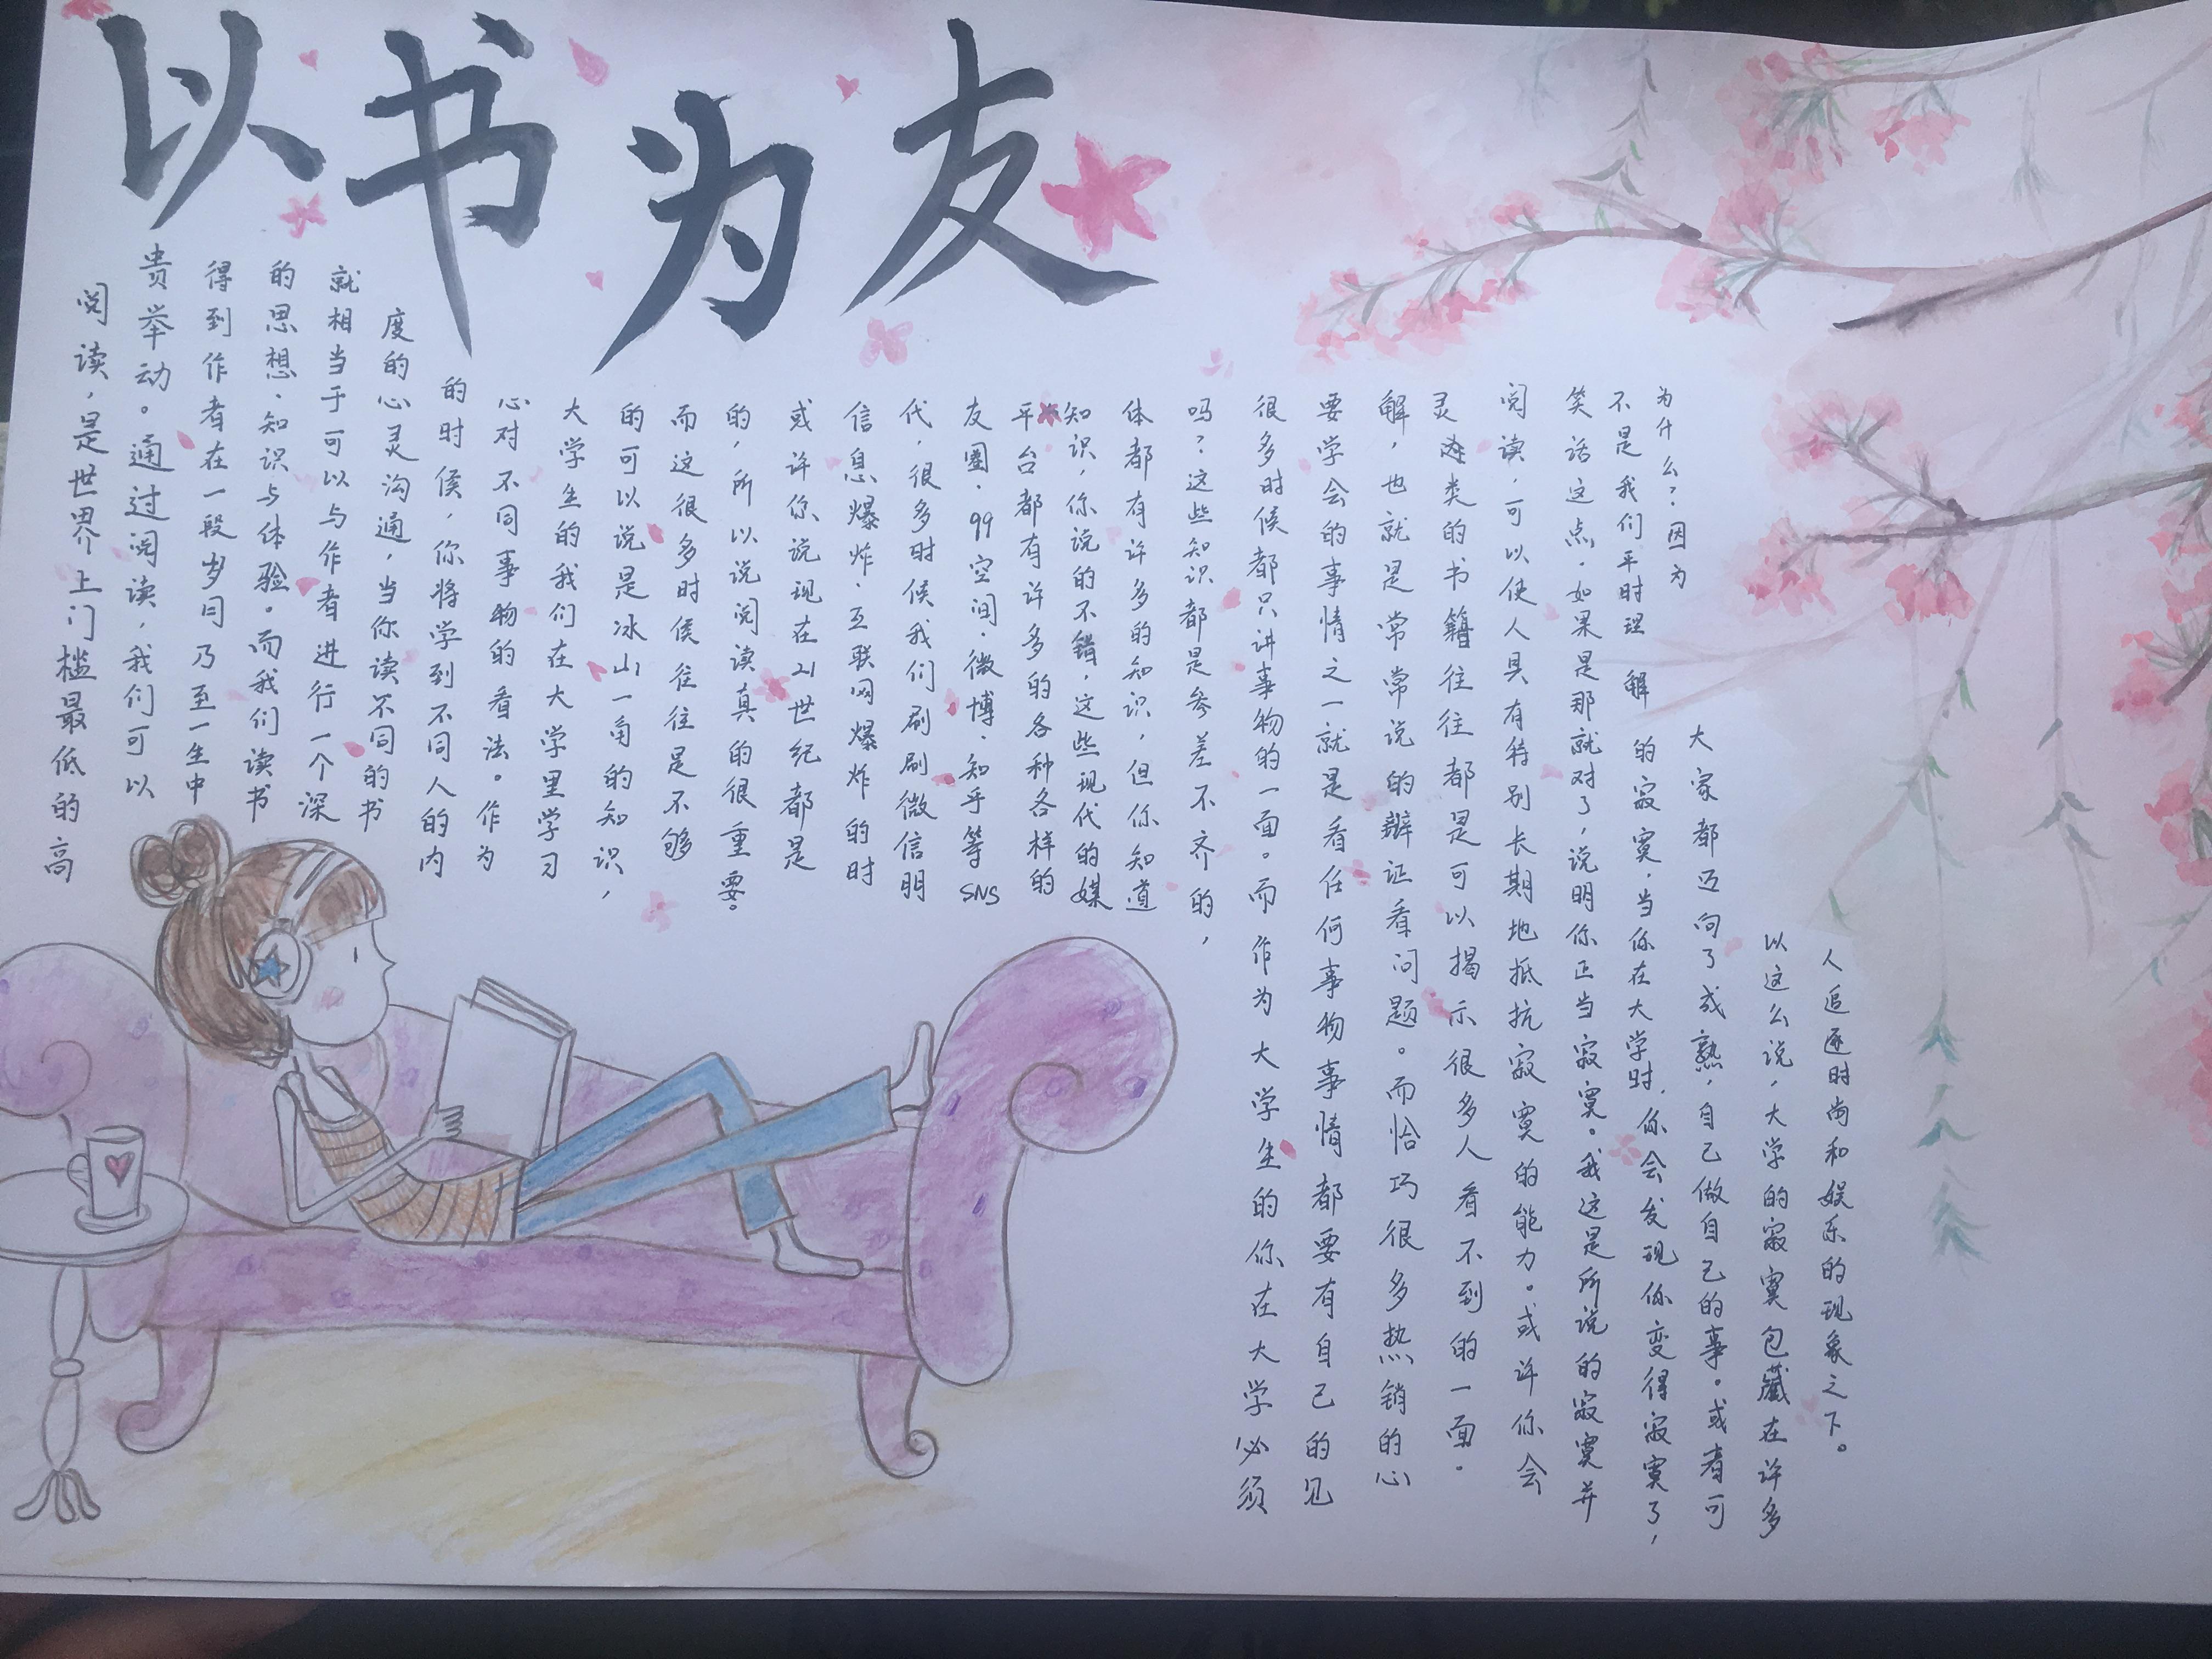 以书为友
阅读,是世界上门槛最低的高
贵举动。通过阅读,我们可以
得到作者在一段岁月乃至一生中
的思想、知识与体验。而我们读书
就相当于可以与作者进行一个深
度的心灵沟通,当你读不同的书
的时侯,你将学到不同人的内
心对不同事物的看法。作为
大学生的我们在大学里学习
的可以说是冰山一角的知识,
而这很多时侯往往是不够
的,所以说阅读真的很重要。
或许你说现在21世纪都是
信息爆炸、互联网爆炸的时
代,很多时候我们刷刷微信朋
友圈、qq空间、微博、知乎等SNS
平台都有许多的各种各样的
知识,你说的不错,这些现代的媒
体都有许多的知识,但你知道
吗?这些知识都是参差不齐的,
很多时候都只讲事物的一面。而作为大学生的你在大学必须
要学会的事情之一就是看任何事物事情都要有自己的见
解,也就是常常说的辩证看问题。而恰巧很多热销的心
灵类的书籍往往都是可以揭示很多人看不到的一面.
阅读,可以使人具有特别长期地抵抗寂寞的能力。或许你会
笑话这点,如果是那就对了,说明你正当寂寞。我这是所说的寂寞并
不是我们平时理解的寂寞,当你在大学时,你会发现你变得寂寞了,
为什么?因为大家都迈向了成熟,自己做自己的事。或者可
以这么说,大学的寂寞包藏在许多
人追逐时尚和娱乐的现象之下。